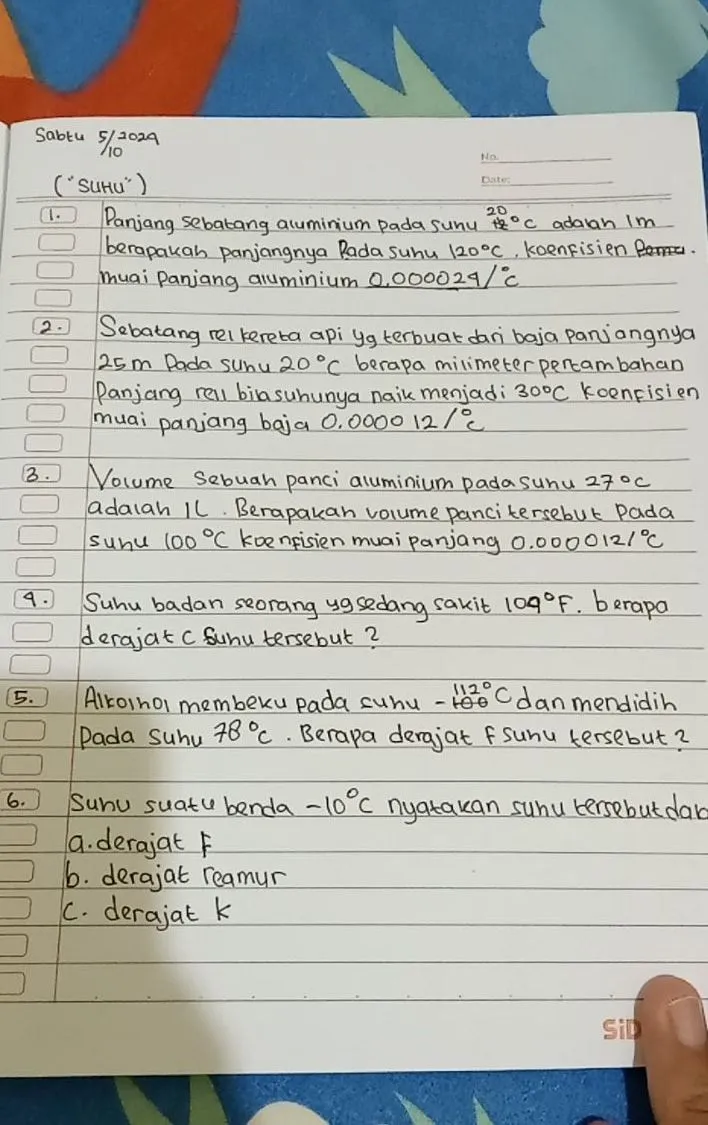 Sabtu 5/10 2024
No.
("SUHU")
Date:
1. Panjang sebatang aluminium pada suhu 20 °C adalah 1m
berapakah panjangnya Pada suhu 120°C. koenfisien
muai Panjang aluminium 0.000024/°C
2. Sebatang rel kereta api yg terbuat dari baja panjangnya
25m Pada suhu 20°C berapa milimeter pertambahan
Panjang rell bila suhunya naik menjadi 30°C koenfisien
muai panjang baja 0.0000 12/°C
3. Volume Sebuah panci aluminium pada suhu 27°C
adalah 1L. Berapakah volume panci tersebut Pada
suhu 100°C koenfisien muai panjang 0.000012/°C
4. Suhu badan seorang yg sedang sakit 104°F. berapa
derajat C Suhu tersebut?
5. Alkohol membeku pada suhu -112°C dan mendidih
Pada suhu 78°C. Berapa derajat F suhu tersebut?
6. Suhu suatu benda -10°C nyatakan suhu tersebut da
a. derajat F
b. derajat reamur
c. derajat k
SiD